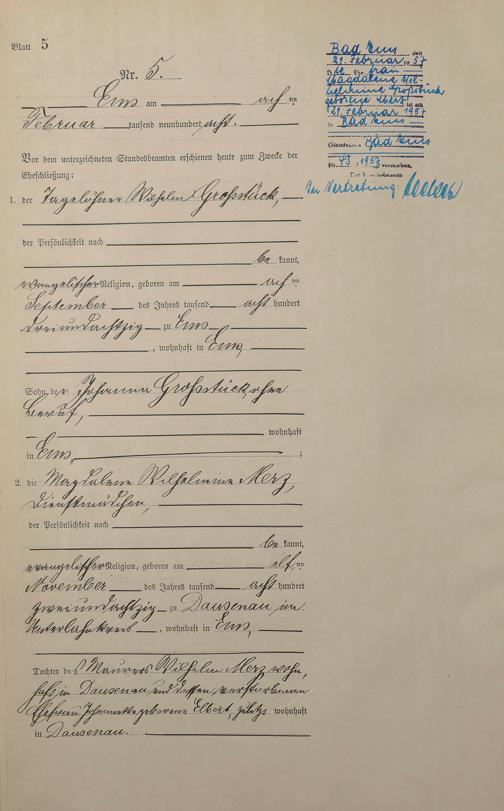 Blatt 5
Nr. 5.
Ems am acht ten
Februar tausend neunhundert acht.
Vor dem unterzeichneten Standesbeamten erschienen heute zum Zwecke der
Eheschließung:
1. der Tagelöhner Wilhelm Großstück,
der Persönlichkeit nach
be kannt,
evangelischer Religion, geboren am acht ten
September des Jahres tausend acht hundert
dreiundachtzig zu Ems
, wohnhaft in Ems,
Sohn der Johanna Großstück, ohne
Beruf,
wohnhaft
in Ems, ;
2. die Magdalene Wilhelmine Merz,
Dienstmädchen,
der Persönlichkeit nach
be kannt,
evangelischer Religion, geboren am elf ten
November des Jahres tausend acht hundert
zweiundachtzig zu Dausenau, im
Unterlahnkreis, wohnhaft in Ems,
Tochter des Maurers Wilhelm Merz wohn,
haft in Dausenau, und dessen verstorbenen
Ehefrau Johannette geborene Elbert, zuletzt wohnhaft
in Dausenau.
Bad Ems, den
21. Februar 1957
Die Ehefrau
Magdalene Wil-
helmine Großstück
geborene Merz
ist am
21. Februar 1957
in Bad Ems
(Standesamt Bad Ems
Nr. 43/1957) verstorben.
Der Standesbeamte
In Vertretung: